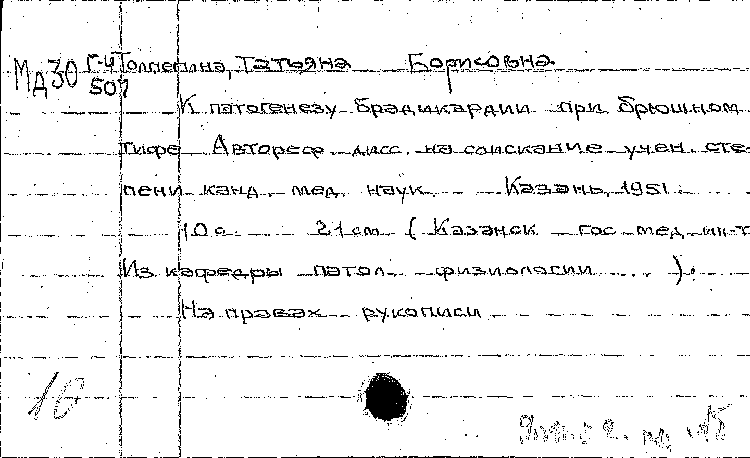 МД30 Г-4 Толпегина, Татьяна Борисовна
507
К патогенезу брадикардии при брюшном
тифе Автореф. дисс. на соискание учен. сте-
пени канд. мед. наук. Казань, 1951.
10 с. 21 см (Казанск. гос. мед. ин-т
Из кафедры патол. физиологии ...).
На правах рукописи
10